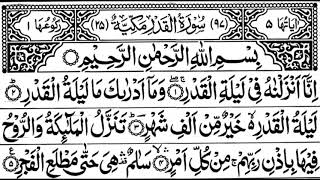 اٰيَاتُهَا ٥ (٩٤) سُوْرَةُ الْقَدْرِ مَكِّيَّةٌ (٢٥) رُكُوْعُهَا ١
بِسْمِ اللّٰهِ الرَّحْمٰنِ الرَّحِيْمِ
اِنَّاۤ اَنْزَلْنٰهُ فِيْ لَيْلَةِ الْقَدْرِ ۚۖ ۝١ وَمَاۤ اَدْرٰىكَ مَا لَيْلَةُ الْقَدْرِ ۝٢
لَيْلَةُ الْقَدْرِ ۙ۬ خَيْرٌ مِّنْ اَلْفِ شَهْرٍ ۝٣ تَنَزَّلُ الْمَلٰٓئِكَةُ وَالرُّوْحُ
فِيْهَا بِاِذْنِ رَبِّهِمْ ۚ مِنْ كُلِّ اَمْرٍ ۝٤ سَلٰمٌ ۛ هِيَ حَتّٰى مَطْلَعِ الْفَجْرِ ۝٥